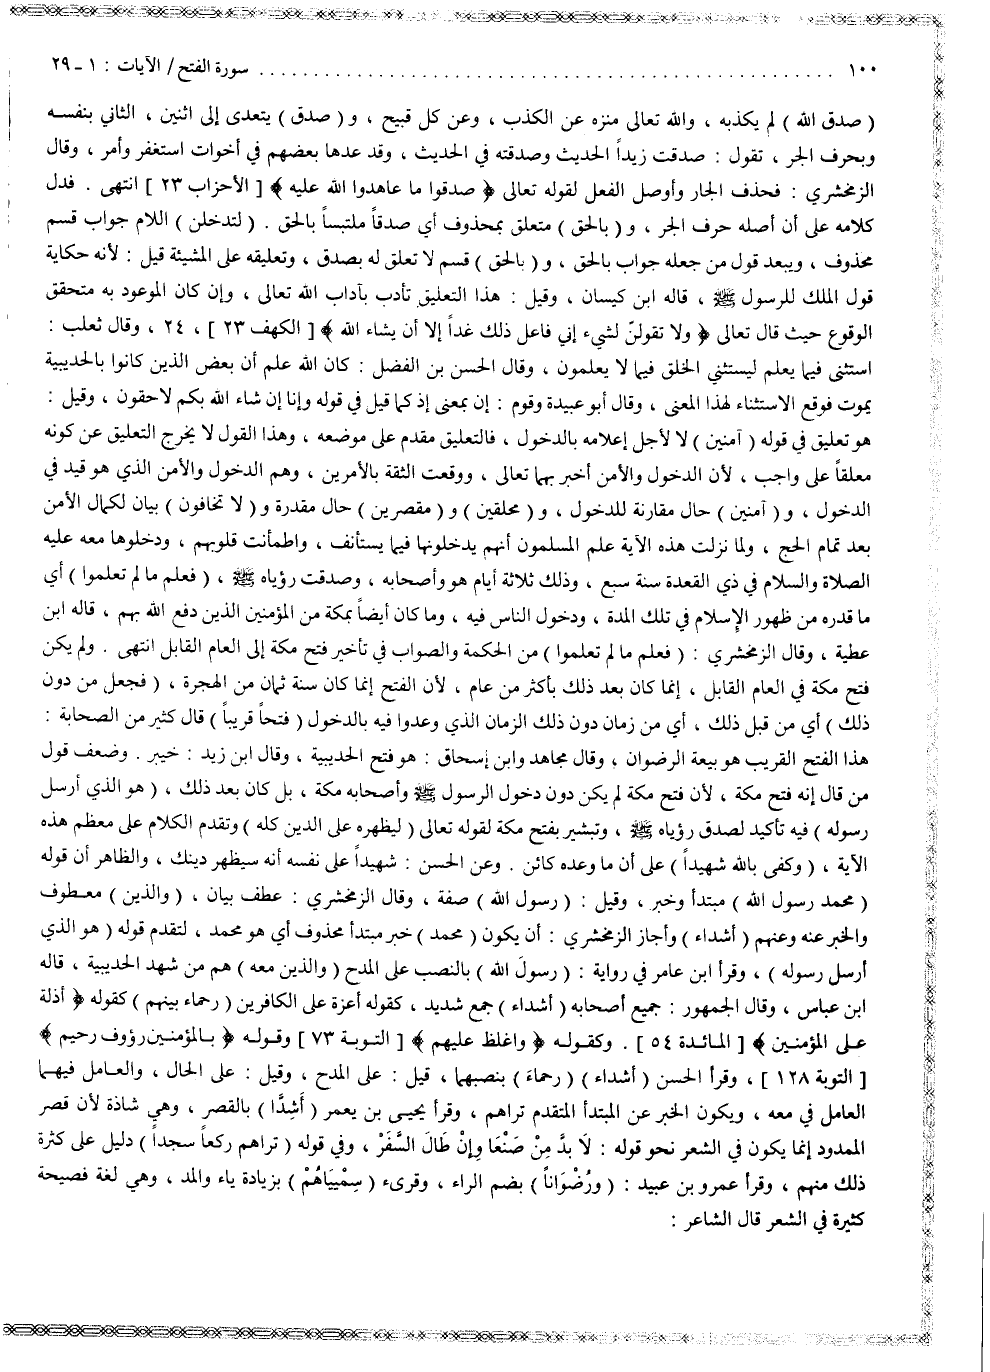 ١٠٠ ........................................ سورة الفتح / الآيات : ١ ـ ٢٩
( صدق الله ) لم يكذبه ، والله تعالى منزه عن الكذب ، وعن كل قبيح ، و ( صدق ) يتعدى إلى اثنين ، الثاني بنفسه
وبحرف الجر ، تقول : صدقت زيداً الحديث وصدقته في الحديث ، وقد عدها بعضهم في أخوات استغفر وأمر ، وقال
الزمخشري : فحذف الجار وأوصل الفعل لقوله تعالى ﴿ صدقوا ما عاهدوا الله عليه ﴾ [ الأحزاب ٢٣ ] انتهى . فدل
كلامه على أن أصله حرف الجر ، و ( بالحق ) متعلق بمحذوف أي صدقاً ملتبساً بالحق . ( لتدخلن ) اللام جواب قسم
محذوف ، ويبعد قول من جعله جواب بالحق ، و ( بالحق ) قسم لا تعلق له بصدق ، وتعليقه على المشيئة قيل : لأنه حكاية
قول الملك للرسول ﷺ ، قاله ابن كيسان ، وقيل : هذا التعليق تأدب بآداب الله تعالى ، وإن كان الموعود به متحقق
الوقوع حيث قال تعالى ﴿ ولا تقولنّ لشيء إني فاعل ذلك غداً إلا أن يشاء الله ﴾ [ الكهف ٢٣ ] ، ٢٤ ، وقال ثعلب :
استثنى فيما يعلم ليستثني الخلق فيما لا يعلمون ، وقال الحسن بن الفضل : كان الله علم أن بعض الذين كانوا بالحديبية
يموت فوقع الاستثناء لهذا المعنى ، وقال أبو عبيدة وقوم : إن بمعنى إذ كما قيل في قوله وإنا إن شاء الله بكم لاحقون ، وقيل :
هو تعليق في قوله ( آمنين ) لا لأجل إعلامه بالدخول ، فالتعليق مقدم على موضعه ، وهذا القول لا يخرج التعليق عن كونه
معلقاً على واجب ، لأن الدخول والأمن أخبر بهما تعالى ، ووقعت الثقة بالأمرين ، وهم الدخول والأمن الذي هو قيد في
الدخول ، و ( آمنين ) حال مقارنة للدخول ، و ( محلقين ) و ( مقصرين ) حال مقدرة و ( لا تخافون ) بيان لكمال الأمن
بعد تمام الحج ، ولما نزلت هذه الآية علم المسلمون أنهم يدخلونها فيما يستأنف ، واطمأنت قلوبهم ، ودخلوها معه عليه
الصلاة والسلام في ذي القعدة سنة سبع ، وذلك ثلاثة أيام هو وأصحابه ، وصدقت رؤياه ﷺ ، ( فعلم ما لم تعلموا ) أي
ما قدره من ظهور الإسلام في تلك المدة ، ودخول الناس فيه ، وما كان أيضاً بمكة من المؤمنين الذين دفع الله بهم ، قاله ابن
عطية ، وقال الزمخشري : ( فعلم ما لم تعلموا ) من الحكمة والصواب في تأخير فتح مكة إلى العام القابل انتهى . ولم يكن
فتح مكة في العام القابل ، إنما كان بعد ذلك بأكثر من عام ، لأن الفتح إنما كان سنة ثمان من الهجرة ، ( فجعل من دون
ذلك ) أي من قبل ذلك ، أي من زمان دون ذلك الزمان الذي وعدوا فيه بالدخول ( فتحاً قريباً ) قال كثير من الصحابة :
هذا الفتح القريب هو بيعة الرضوان ، وقال مجاهد وابن إسحاق : هو فتح الحديبية ، وقال ابن زيد : خيبر . وضعف قول
من قال إنه فتح مكة ، لأن فتح مكة لم يكن دون دخول الرسول ﷺ وأصحابه مكة ، بل كان بعد ذلك ، ( هو الذي أرسل
رسوله ) فيه تأكيد لصدق رؤياه ﷺ ، وتبشير بفتح مكة لقوله تعالى ( ليظهره على الدين كله ) وتقدم الكلام على معظم هذه
الآية ، ( وكفى بالله شهيداً ) على أن ما وعده كائن . وعن الحسن : شهيداً على نفسه أنه سيظهر دينك ، والظاهر أن قوله
( محمد رسول الله ) مبتدأ وخبر ، وقيل : ( رسول الله ) صفة ، وقال الزمخشري : عطف بيان ، ( والذين ) معطوف
والخبر عنه وعنهم ( أشداء ) وأجاز الزمخشري : أن يكون ( محمد ) خبر مبتدأ محذوف أي هو محمد ، لتقدم قوله ( هو الذي
أرسل رسوله ) ، وقرأ ابن عامر في رواية : ( رسولَ الله ) بالنصب على المدح ( والذين معه ) هم من شهد الحديبية ، قاله
ابن عباس ، وقال الجمهور : جميع أصحابه ( أشداء ) جمع شديد ، كقوله أعزة على الكافرين ( رحماء بينهم ) كقوله ﴿ أذلة
على المؤمنين ﴾ [ المائدة ٥٤ ] . وكقوله ﴿ واغلظ عليهم ﴾ [ التوبة ٧٣ ] وقوله ﴿ بالمؤمنين رؤوف رحيم ﴾
[ التوبة ١٢٨ ] ، وقرأ الحسن ( أشداء ) ( رحماءَ ) بنصبهما ، قيل : على المدح ، وقيل : على الحال ، والعامل فيهما
العامل في معه ، ويكون الخبر عن المبتدأ المتقدم تراهم ، وقرأ يحيى بن يعمر ( أَشِدَّا ) بالقصر ، وهي شاذة لأن قصر
الممدود إنما يكون في الشعر نحو قوله : لَا بَدَّ مِنْ صَنْعَا وإِنْ طَالَ السَّفَرْ ، وفي قوله ( تراهم ركعاً سجداً ) دليل على كثرة
ذلك منهم ، وقرأ عمرو بن عبيد : ( ورُضْوَاناً ) بضم الراء ، وقرىء ( سِمْيَيَاهُمْ ) بزيادة ياء والمد ، وهي لغة فصيحة
كثيرة في الشعر قال الشاعر :